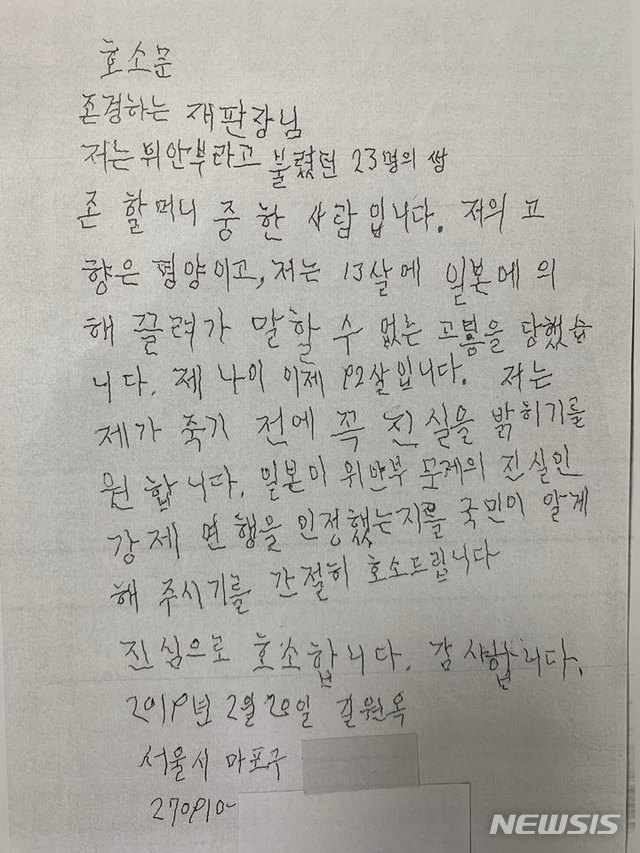 호소문
존경하는 재판장님
저는 위안부라고 불렸던 23명의 쌩
존 할머니 중 한 사람입니다. 저의 고
향은 평양이고, 저는 13살에 일본에 의
해 끌려가 말할 수 없는 고통을 당했습
니다. 제 나이 이제 92살입니다. 저는
제가 죽기 전에 꼭 진실을 밝히기를
원합니다. 일본이 위안부 문제의 진실인
강제 연행을 인정했는지를 국민이 알게
해 주시기를 간절히 호소드립니다
진심으로 호소합니다. 감사합니다.
2019년 2월 20일 길원옥
서울시 마포구
NEWSIS